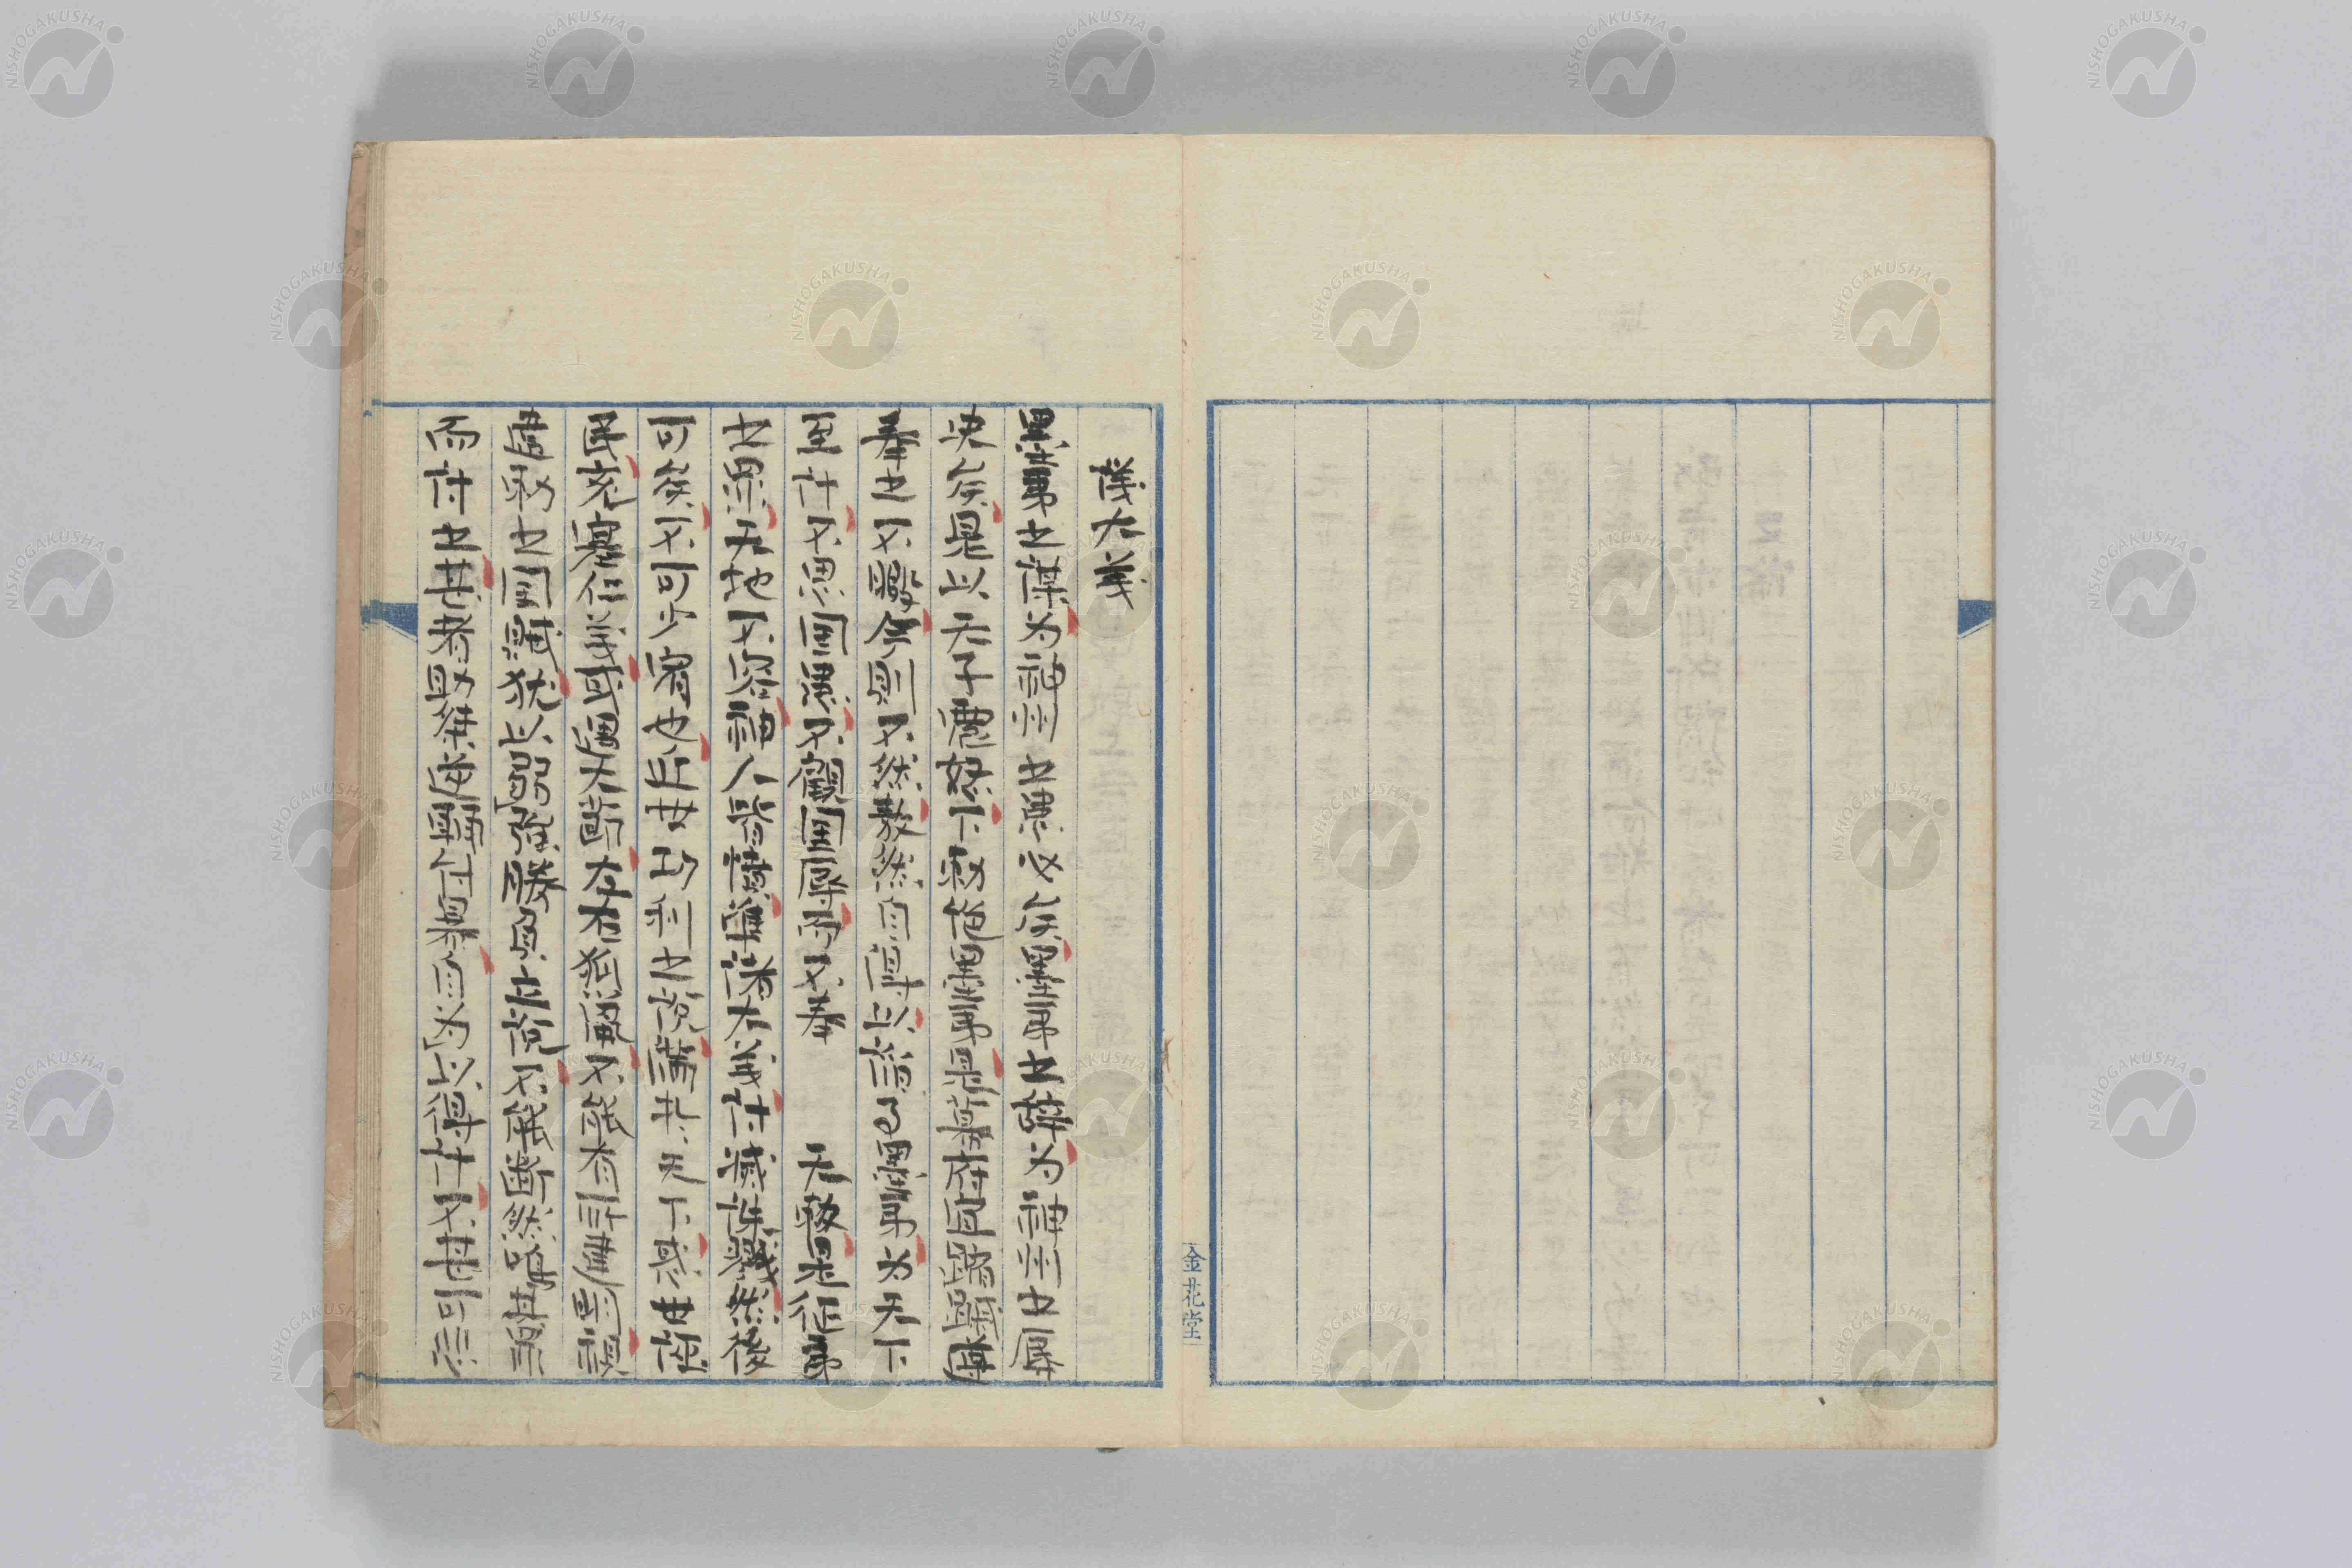 議大義
墨夷之謀為神州之患必矣墨夷之辭為神州之辱
決矣是以天子震怒下勅絶墨夷是幕府宜蹜蹙遵
奉之不暇今則不然敖然自尊以諂事墨夷為天下
至計不思国患不顧国辱而不奉 天敕是征夷
之罪天地不容神人皆憤準諸大義討滅誅戮然後
可矣不可少宥也近世功利之説満于天下惑世誣
民充塞仁義或遇大節左右狐疑不能有所建明視
違勅之国賊猶以強弱勝負立説不能断然唱其罪
而討之甚者取 自為以得計不甚可悲
金花堂